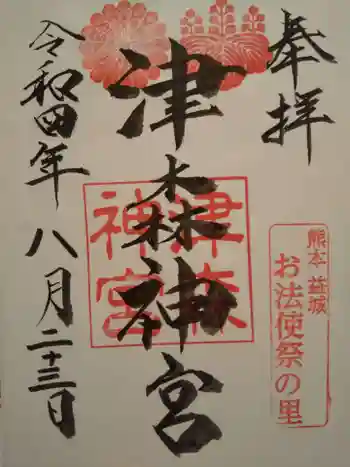 奉拝
熊本 益城
お法使祭の里
津森神宮
津森
神宮
令和四年八月二十三日